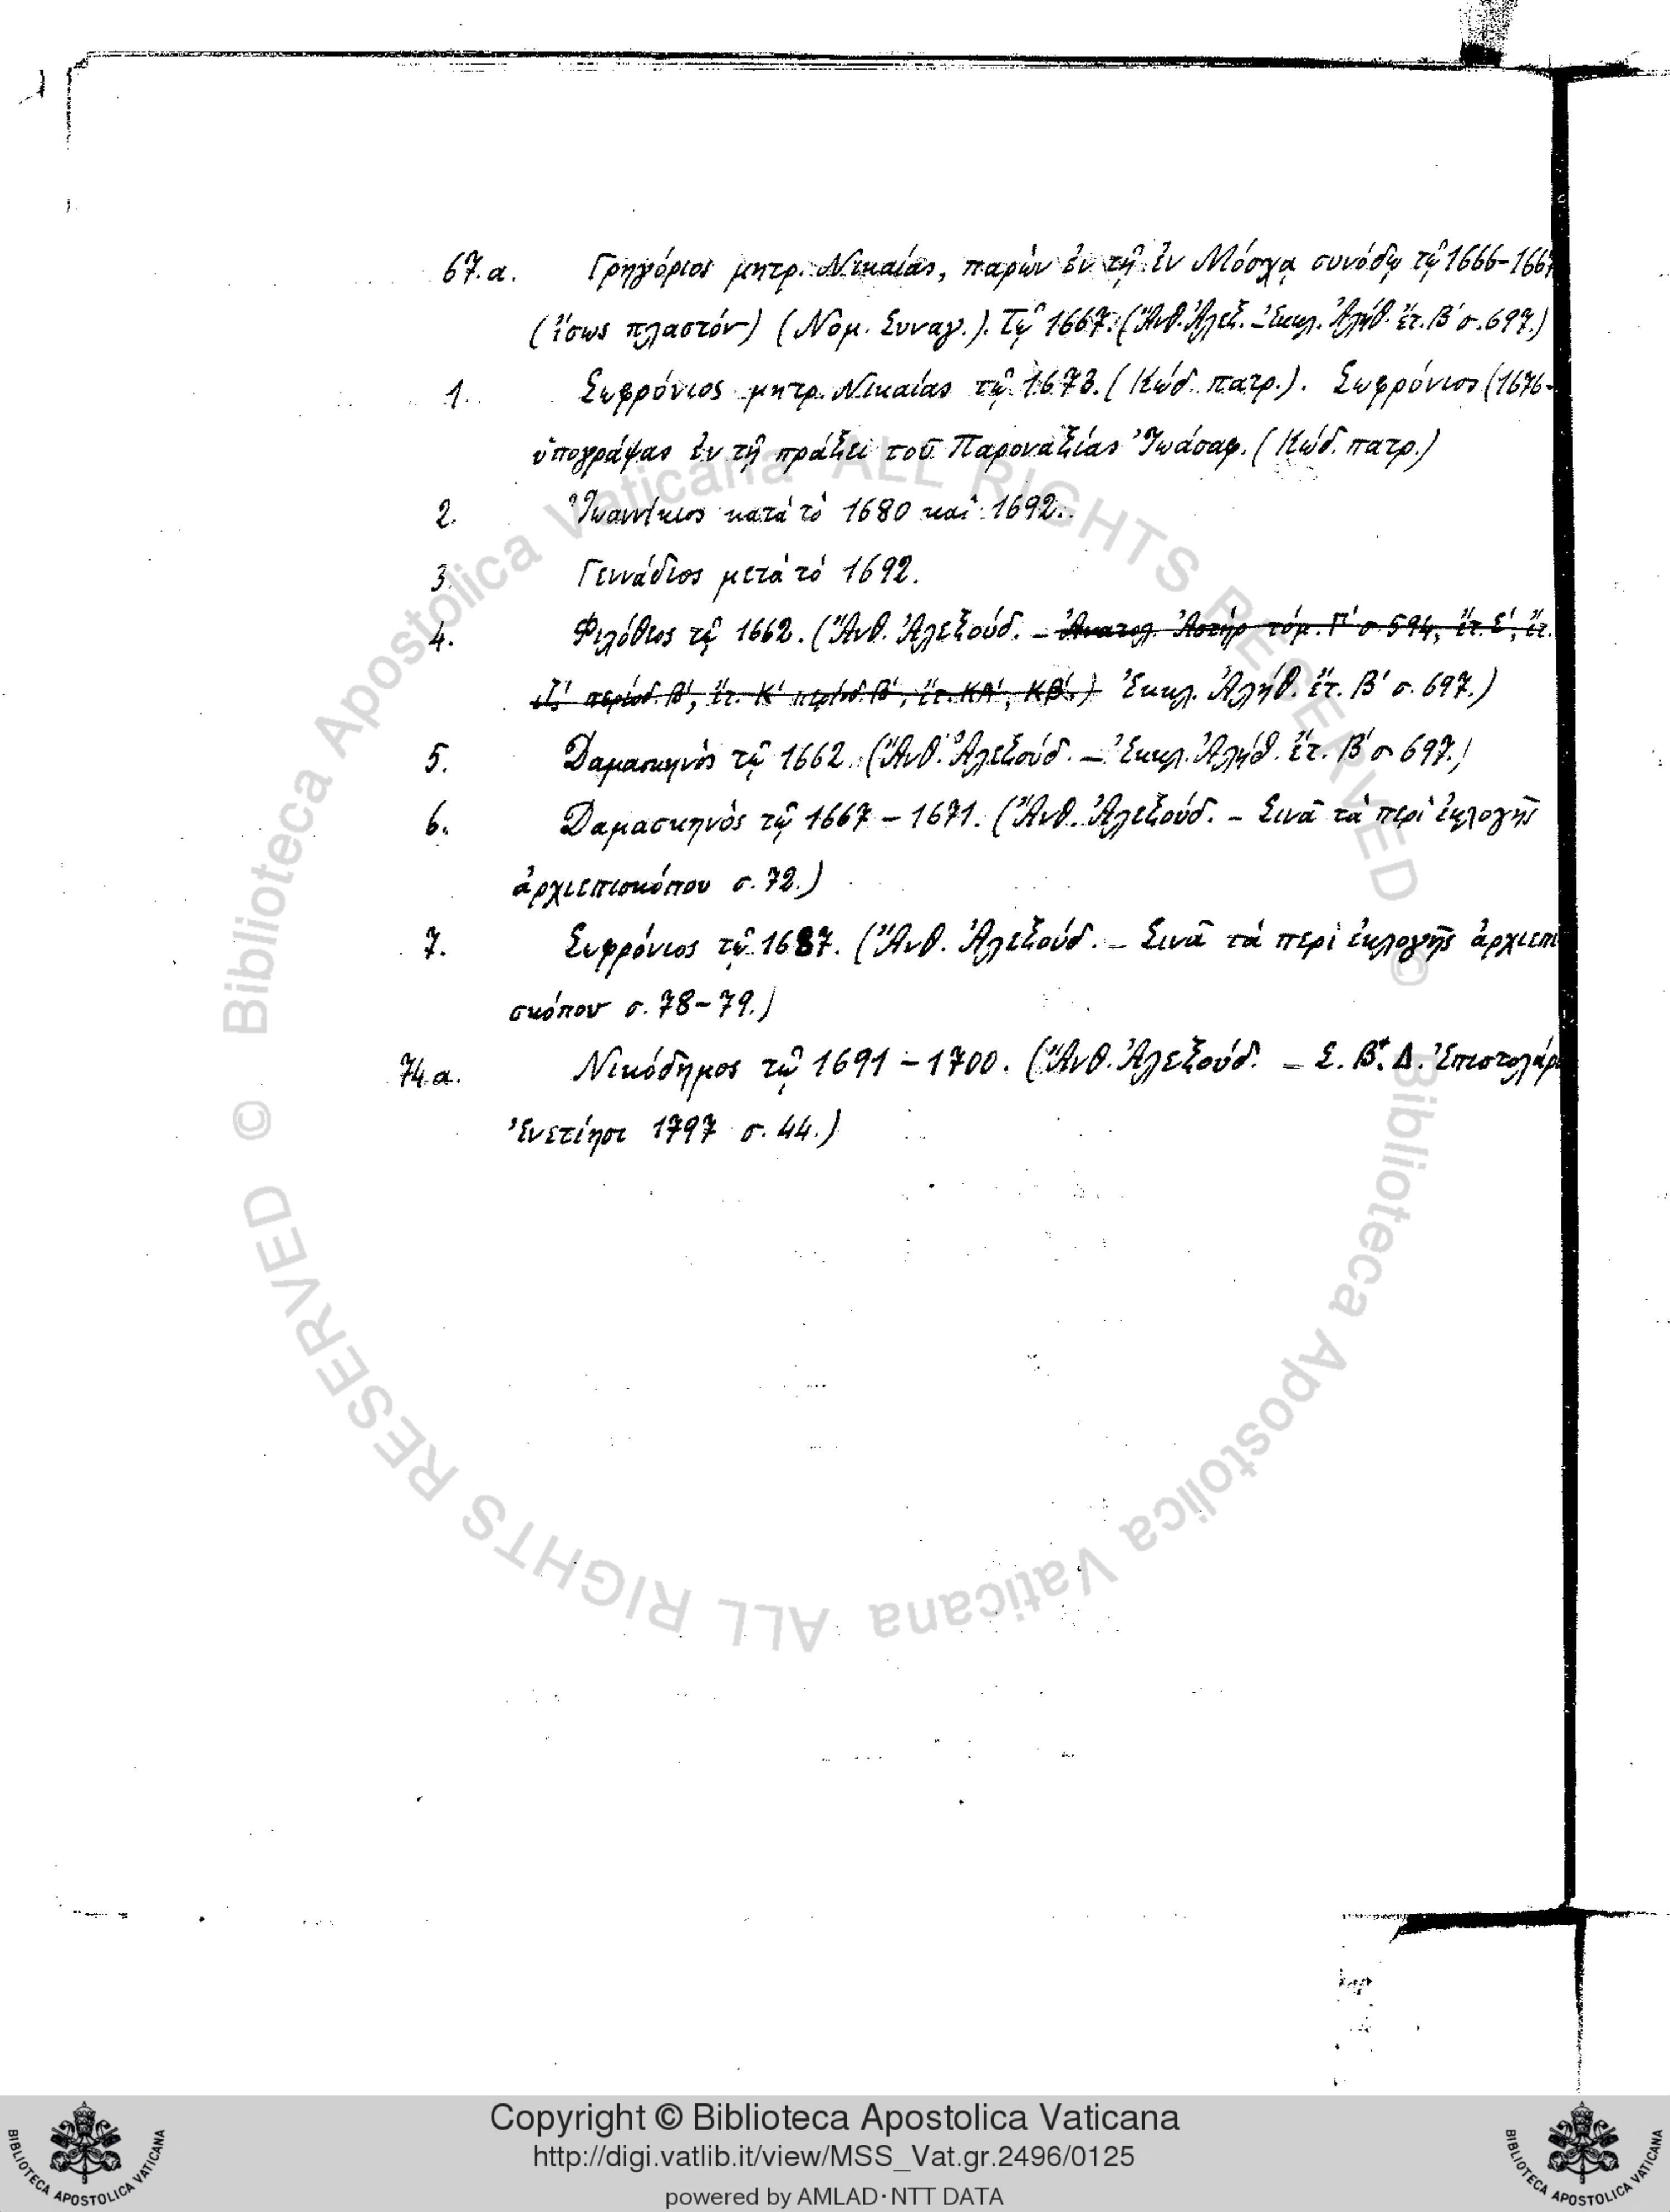 67.α. Γρηγόριος μητρ. Νικαίας, παρὼν ἐν τῇ ἐν Μόσχᾳ συνόδῳ τῷ 1666-166
(ἴσως πλαστόν) (Νομ. Συναγ.). Τῷ 1667. (Ἄνθ. Ἀλεξ. – Ἐκκλ. Ἀλήθ. ἔτ. Β′ σ. 697.)
1. Σωφρόνιος μητρ. Νικαίας τῷ 1673. (Κώδ. πατρ.). Σωφρόνιος (1676-
ὑπογράψας ἐν τῇ πράξει τοῦ Παροναξίας Ἰωάσαφ. (Κώδ. πατρ.)
2. Ἰωαννίκιος κατὰ τὸ 1680 καὶ 1692.
3. Γεννάδιος μετὰ τὸ 1692.
4. Φιλόθεος τῷ 1662. (Ἄνθ. Ἀλεξούδ. – Ἀνατολ. Ἀστὴρ τόμ. Γ′ σ. 594, ἔτ. Ε′, ἔτ.
ιζ′ περίοδ. Β′, ἔτ. Κ′ περίοδ. Β′, ἔτ. ΚΑ′, ΚΒ′.) Ἐκκλ. Ἀλήθ. ἔτ. Β′ σ. 697.)
5. Δαμασκηνὸς τῷ 1662. (Ἄνθ. Ἀλεξούδ. – Ἐκκλ. Ἀλήθ. ἔτ. Β′ σ 697.)
6. Δαμασκηνὸς τῷ 1667 – 1671. (Ἄνθ. Ἀλεξούδ. – Σινᾶ τὰ περὶ ἐκλογῆς
ἀρχιεπισκόπου σ. 72.)
7. Σωφρόνιος τῷ 1687. (Ἄνθ. Ἀλεξούδ. – Σινᾶ τὰ περὶ ἐκλογῆς ἀρχιεπι
σκόπου σ. 78-79.)
74.α. Νικόδημος τῷ 1691 – 1700. (Ἄνθ. Ἀλεξούδ. – Σ. Β. Δ. Ἐπιστολάρ
Ἐνετίησι 1797 σ. 44.)
© Biblioteca Apostolica Vaticana ALL RIGHTS RESERVED
© Biblioteca Apostolica Vaticana ALL RIGHTS RESERVED
Copyright © Biblioteca Apostolica Vaticana
http://digi.vatlib.it/view/MSS_Vat.gr.2496/0125
powered by AMLAD·NTT DATA
BIBLIOTECA APOSTOLICA VATICANA
BIBLIOTECA APOSTOLICA VATICANA